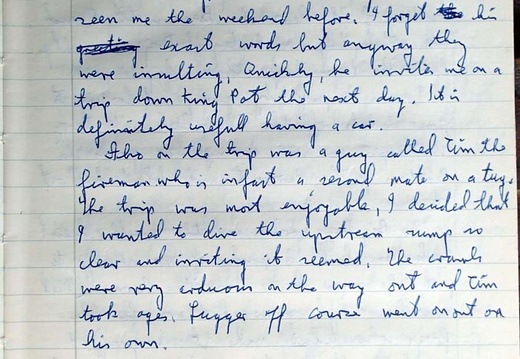 seen me the weekend before. I forget his
exact words but anyway they
were insulting. Quickly, he invites me on a
trip down King Pot the next day. It is
definitely usefull having a car.
Also on the trip was a guy called Tim the
fireman who is infact a second mate on a tug.
The trip was most enjoyable, I decided that
I wanted to dive the upstream sump so
clear and inviting it seemed. The crawls
were very arduous on the way out and Tim
took ages. off course went on out on
his own.